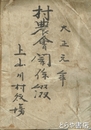 大正元年
村農會関係綴
上小川村役場